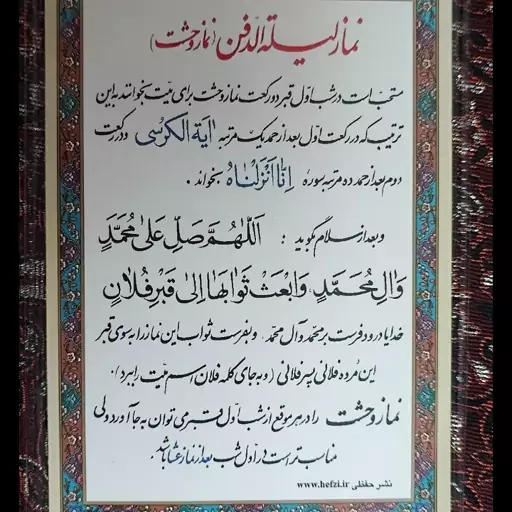 نماز لیلة الدّفن (نماز وحشت)
مستحبّ است در شب اوّل قبر دو رکعت نماز وحشت برای میّت بخوانند به این
ترتیب که در رکعت اوّل بعد از حمد یک مرتبه اٰیَةَ الْکُرْسی و در رکعت
دوم بعد از حمد ده مرتبه سوره اِنّٰا اَنْزَلْنٰاهُ بخواند .
و بعد از سلام بگوید : اَللّٰهُمَّ صَلِّ عَلیٰ مُحَمَّدٍ
وَ اٰلِ مُحَمَّدٍ وَ ابْعَثْ ثَوٰابَهٰا اِلیٰ قَبْرِ فُلٰانٍ
خدایا درود فرست بر محمّد و آل محمّد و بفرست ثواب این نماز را به سوی قبر
این مُرده فلانی پسر فلانی (و به جای کلمه فلان اسم میّت را ببرد) .
نماز وحشت را در هر موقع از شب اوّل قبر می توان به جا آورد ولی
مناسب تر است در اوّل شب بعد از نماز عشا باشد .
نشر حفظی www.hefzi.ir